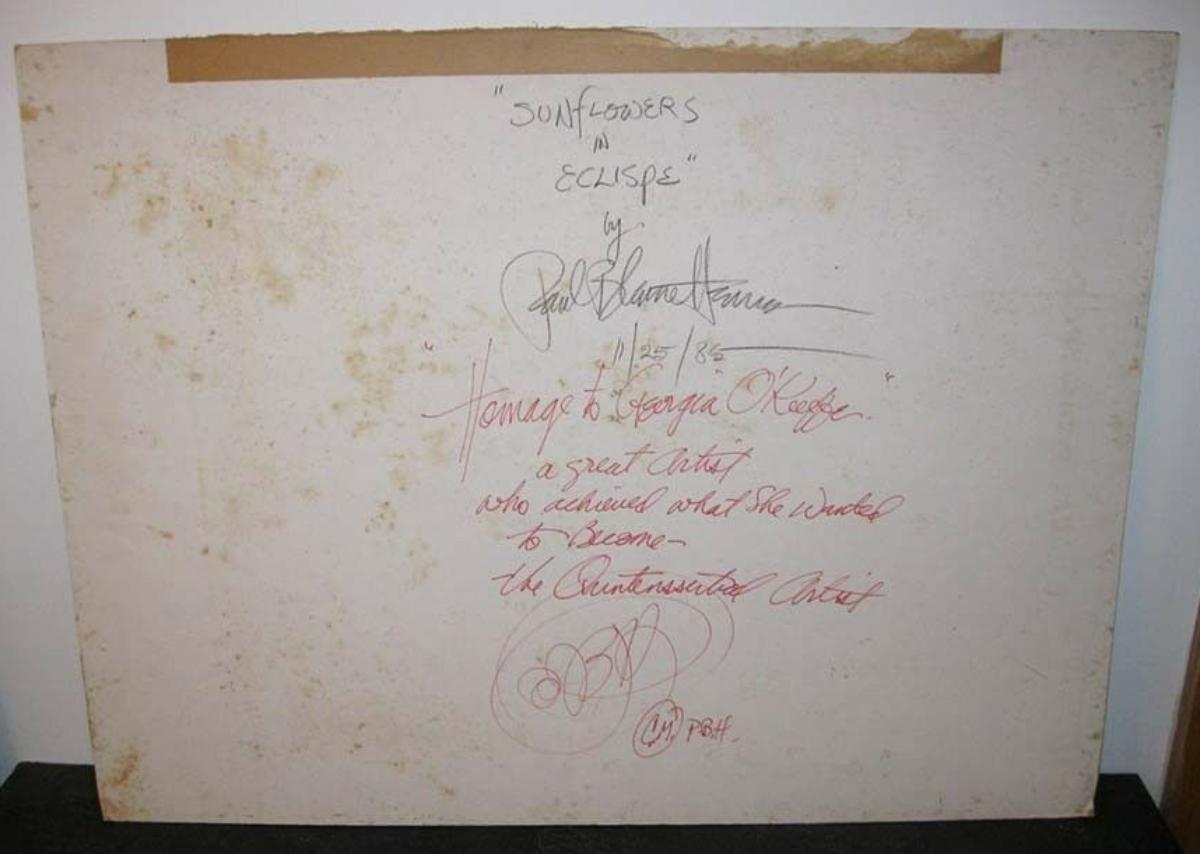 "SUNFLOWERS
IN
ECLISPE"
by
Paul Blaine
11/25/85
"Homage to Georgia O'Keeffe"
a great Artist
who achieved what She Wanted
to Become-
the Quintenssential Artist
PBH.